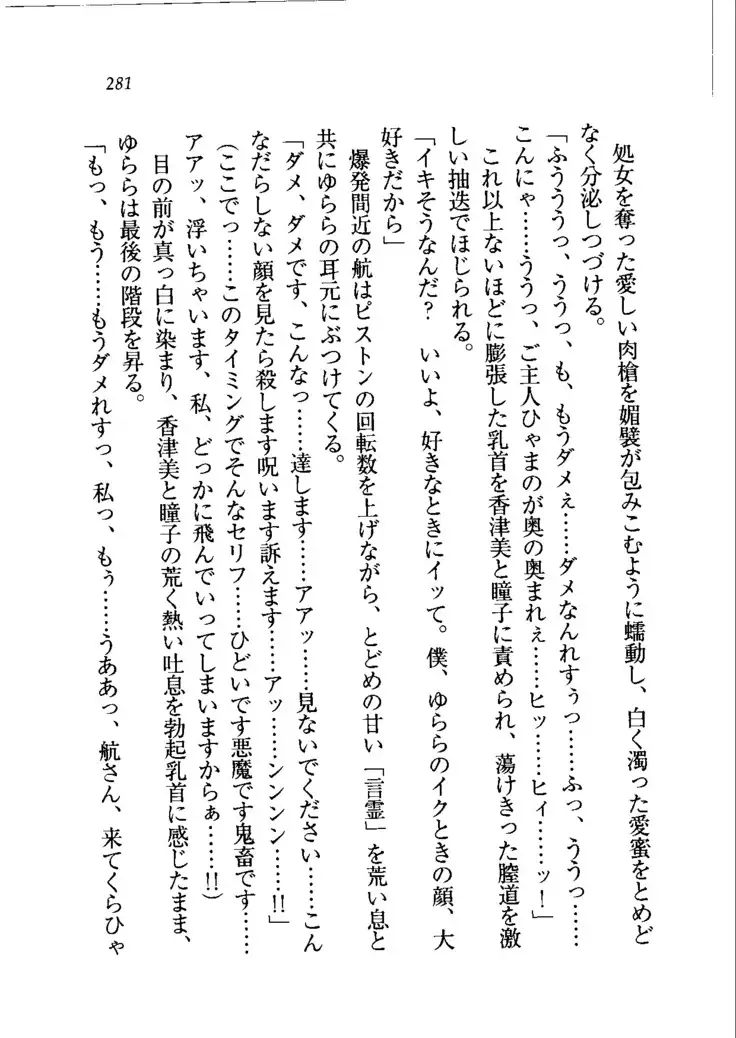 281
処女を奪った愛しい肉槍を媚襞が包みこむように蠕動し、白く濁った愛蜜をとめど
なく分泌しつづける。
「ふううっ、ううっ、も、もうダメぇ……ダメなんれすぅっ……ふっ、ううっ……
こんにゃ……ううっ、ご主人ひゃまのが奥の奥まれぇ……ヒッ……ヒィ……ッ！」
これ以上ないほどに膨張した乳首を香津美と瞳子に責められ、蕩けきった膣道を激
しい抽送でほじられる。
「イキそうなんだ？　いいよ、好きなときにイッて。僕、ゆららのイクときの顔、大
好きだから」
爆発間近の航はピストンの回転数を上げながら、とどめの甘い「言霊」を荒い息と
共にゆららの耳元にぶつけてくる。
「ダメ、ダメです、こんなっ……達します……アアッ……見ないでください……こん
なだらしない顔を見たら殺します呪います訴えます……アッ……ンンンン……!!」
（ここでっ……このタイミングでそんなセリフ……ひどいです悪魔です鬼畜です……
アアッ、浮いちゃいます、私、どっかに飛んでいってしまいますからぁ……!!）
目の前が真っ白に染まり、香津美と瞳子の荒く熱い吐息を勃起乳首に感じたまま、
ゆららは最後の階段を昇る。
「もっ、もう……もうダメれすっ、私っ、もぅ……うああっ、航さん、来てくらひゃ